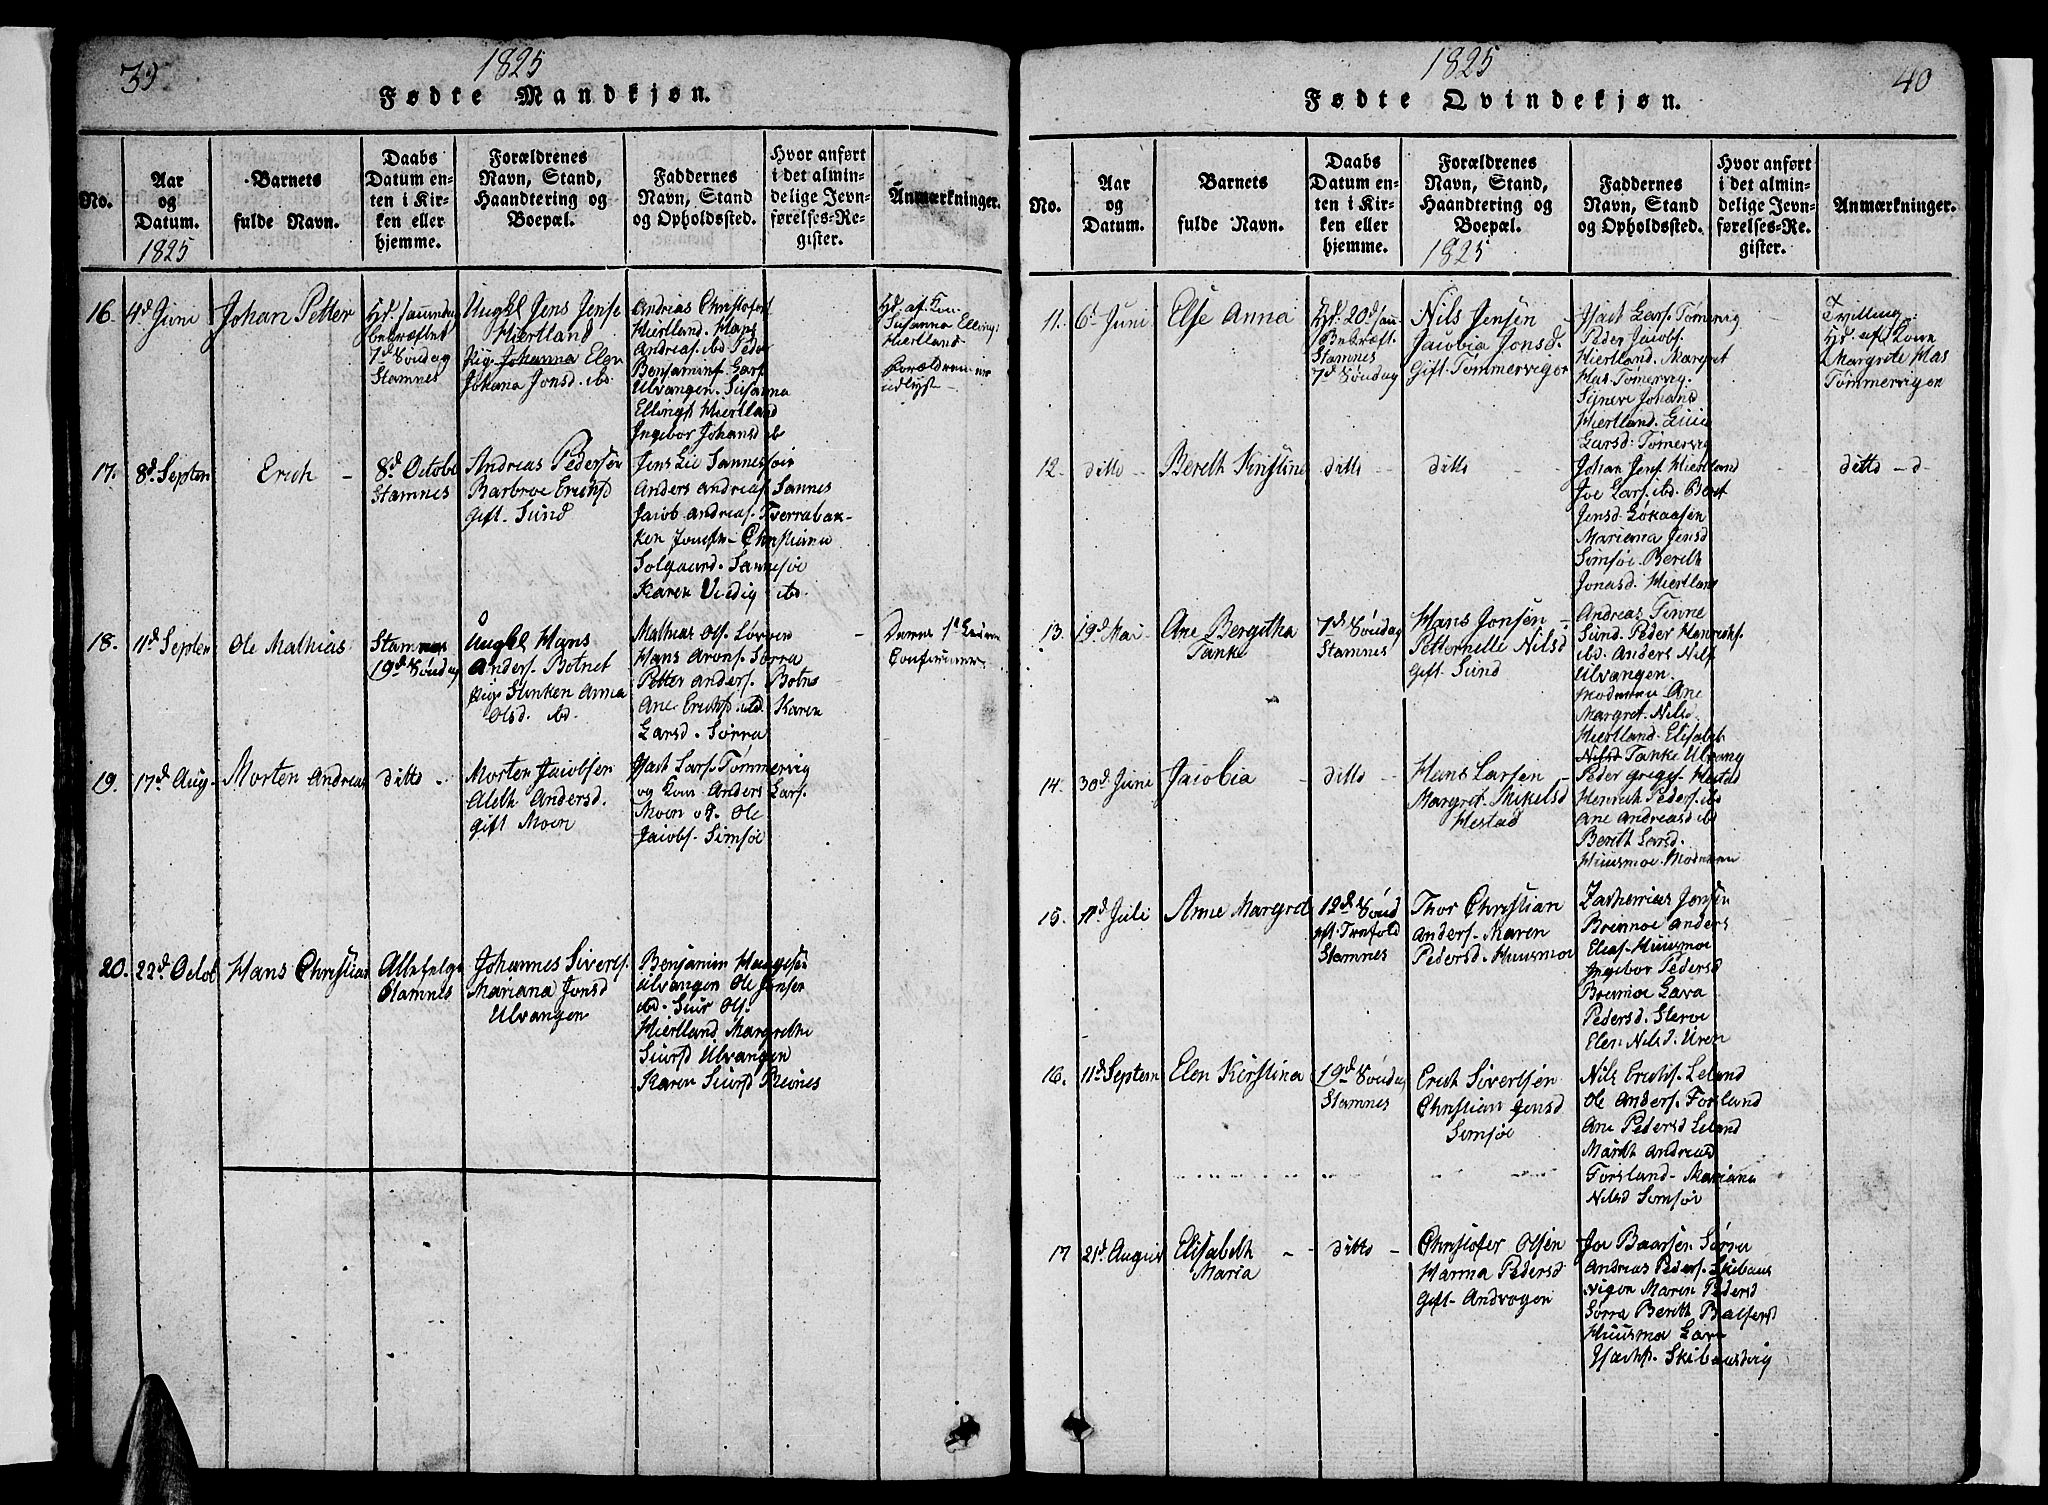 39
1825
Fødte Mandkjøn.
No.
Aar
og
Datum.
1825
Barnets
fulde Navn.
Daabs
Datum en-
ten i Kir-
ken eller
hjemme.
Forældrenes
Navn, Stand,
Haandtering og
Boepæl.
Faddernes
Navn, Stand
og Opholdssted.
Hvor anført
i det almin-
delige Jevn-
førelses-Re-
gister.
Anmærkninger.
16.
4d Juni
Johan Petter
Hd.
bekræftet
7d Søndag
Stamnes
Ungkl Jens Jense
Hiertland
Pig. Johanna Elen
Johana Jonsd. ibd.
Andreas Christofers
Hiertland. Hans
Andreas. ibd Peder
Benjamins Lars
Ulvangen. Susanna
Ellingsd Hiertland
Ingebor Johansd ib
Hd. af Kon
Susanna Ellings
Hiertland
Forældrene er
udlyst
17.
8d Septem
Erich
8d Octobr
Stamnes
Andreas Pedersen
Barbroe Erichsd
Gift. Sund
Jens Lie Sannessøin
Anders Andreas. Sannes
Jacob Andreas. Tverrabak-
ken Jomfr. Christiana
Solgaard. Sannesøe
Karen Vedig ibd.
18.
11d Septem
Ole Mathias
Stamnes
19d Søndag
Ungkl Hans
Anders. Botnet
Pige Synken Anna
Olsd. ibd.
Mathias Ols. Løvren
Hans Arons. Sørra
Petter Anders. Botns
Ane Erichsd. ibd. Karen
Larsd. Sørra
Deres 1te
19.
17d Aug
Morten Andreas
ditto
Morten Jacobsen
Aleth Andersd.
Gift Moen
Hast Lars. Tømmervig
og Kone Anders Lars.
Moen og Ole
Jacobs. Simsøe
20.
22d Octob
Hans Christian
Allehelge
Stamnes
Johannes Siverts.
Mariana Jonsd
Ulvangen
Benjamin Haagese
Ulvangen Ole Jensen
ibd. Siur Ols.
Hiertland Margrethe
Siursd Ulvangen
Karen Siursd Reines
1825
40
Fødte Qvindekjøn.
No.
Aar
og
Datum.
Barnets
fulde Navn.
Daabs
Datum en-
ten i Kir-
ken eller
hjemme.
Forældrenes
Navn, Stand,
Haandtering og
Boepæl.
1825
Faddernes
Navn, Stand
og Opholdssted.
Hvor anført
i det almin-
delige Jevn-
førelses-Re-
gister.
Anmærkninger.
11.
6d Juni
Else Anna
Hd. 20d
Bekræft.
Stamnes
7d Søndag
Nils Jensen
Jacobia Jonsd.
Gift. Tømmervigen
Hast Lars. Tømervig
Peder Jacobs.
Hiertland. Margret
Has Tømervig.
Synerv Johansd
Hiertland. Lucie
Larsd. Tømervig
Tvilling
Hd. af Kone
Margrete Has
Tømmervigen
12.
ditto
Bereth Kristine
ditto
ditto
Johan Jens Hiertland
Joe Lars. ibd. Beret
Jensd. Løkaasen
Mariana Jensd
Simsøe. Bereth
Jonasd. Hiertland
ditto
13.
19d Mai
Ane Bergitha
Tanke
7d Søndag
Stamnes
Hans Jonsen
Petternelle Nilsd
Gift. Sund
Andreas Finne
Sund. Peder Henrichs.
ibd. Anders Nils
Ulvangen.
Moderen Ane
Margret. Nilsd.
Hiertland. Elisabet
Nilsd Tanke Ulvang
14.
30d Juni
Jacobia
ditto
Hans Larsen
Margret. Mikelsd
Hestad
Peder Gregs. Hestad
Henrich Peders. ibd
Ane Andreasd ibd
Bereth Larsd.
Huusmoe. Moderen
15.
17d Juli
Anne Margret
12d Sønd
eft. Trefold
Stamnes
Thor Christian
Anders. Maren
Pedersd. Huusmoe
Zacherias Jensen
Breimoe Anders
Elias. Huusmoe
Ingebor Pedersd
Breimoe Lava
Pedersd. Sterve
Elen Nilsd. Uren
16.
11d Septem
Elen Kirstina
19d Søndag
Stamnes
Erich Sivertsen
Christian Jensd
Simsøe
Nils Erichs. Leland
Ole Anders. Forsland
Ane Pedersd Leland
Mareth Andreasd
Forsland. Mariana
Nilsd Somsøe
17
21d August
Elisabeth
Maria
ditto
Christofer Olsen
Hanna Pedersd
Gift. Andvogen
Joe Baarsen Sørra
Andreas Peders. Skibaas
vigen Maren Pedersd
Sørra Bereth Baltsersd
Huusmoe Lava
Isachs. Skibaasvig